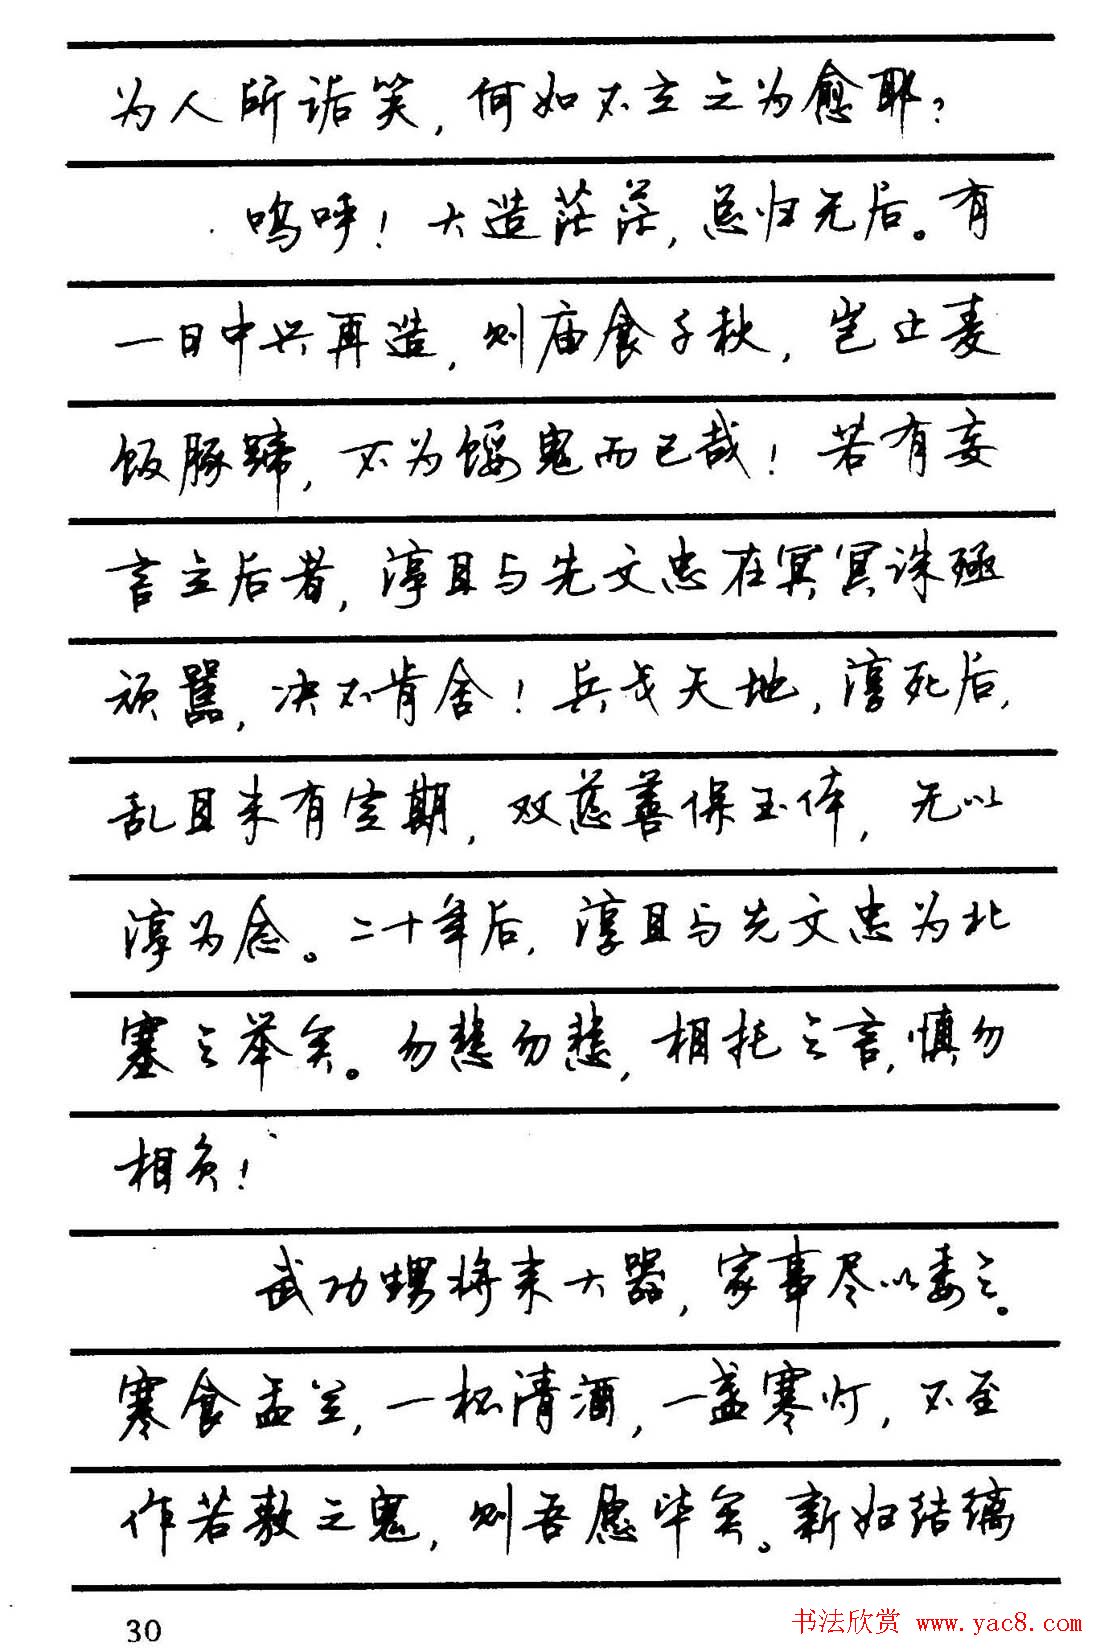 为人所诟笑，何如不立之为愈耶？
呜呼！大造茫茫，总归无后。有
一日中兴再造，则庙食千秋，岂止麦
饭豚蹄，不为馁鬼而已哉！若有妄
言立后者，淳且与先文忠在冥冥诛殛
顽嚚，决不肯舍！兵戈天地，淳死后，
乱且未有定期，双慈善保玉体，无以
淳为念。二十年后，淳且与先文忠为北
塞之举矣。勿悲勿悲，相托之言，慎勿
相负！
武功甥将来大器，家事尽以委之。
寒食盂兰，一杯清酒，一盏寒灯，不至
作若敖之鬼，则吾愿毕矣。新妇结缡
30
书法欣赏 www.yac8.com